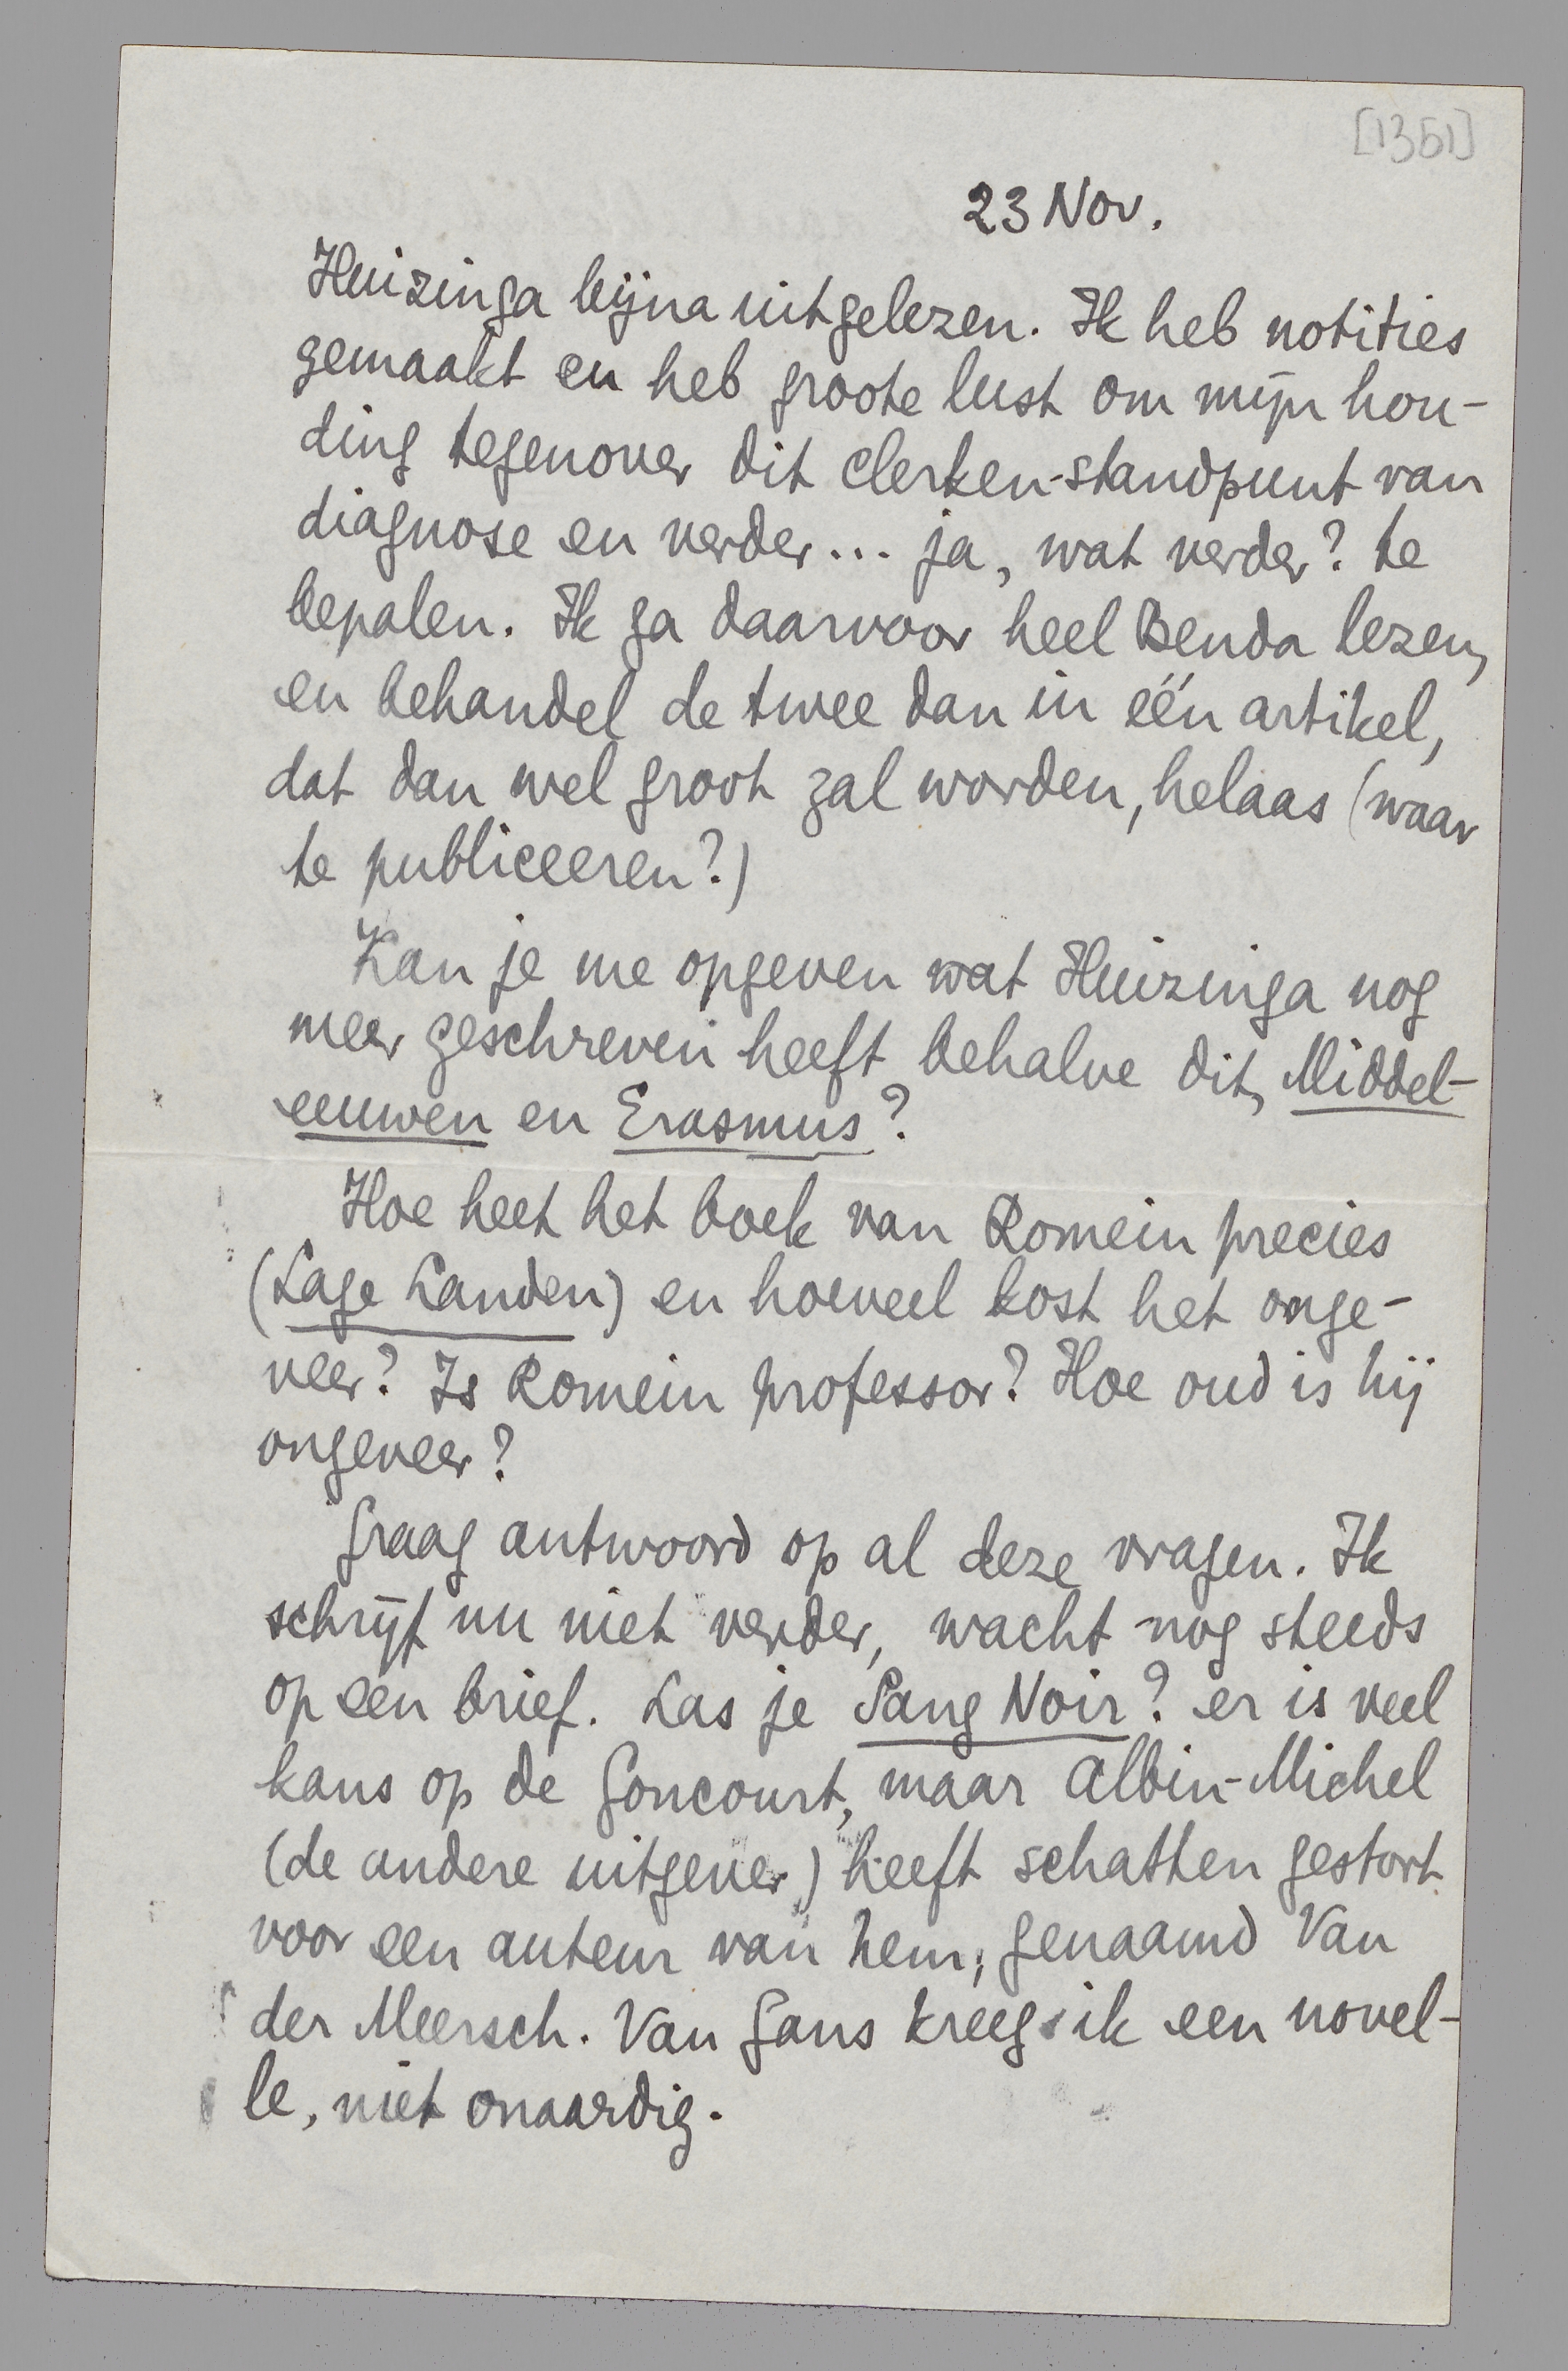 [1351]
23 Nov.
Huizinga bijna uitgelezen. Ik heb notities
gemaakt en heb groote lust om mijn hou-
ding tegenover dit clerken-standpunt van
diagnose en verder... ja, wat verder? te
bepalen. Ik ga daarvoor heel Benda lezen,
en behandel de twee dan in één artikel,
dat dan wel groot zal worden, helaas (waar
te publiceeren?)
Kan je me opgeven wat Huizinga nog
meer geschreven heeft behalve dit, Middel-
eeuwen en Erasmus?
Hoe heet het boek van Romein precies
(Lage Landen) en hoeveel kost het onge-
veer? Is Romein professor? Hoe oud is hij
ongeveer?
Graag antwoord op al deze vragen. Ik
schrijf nu niet verder, wacht nog steeds
op een brief. Las je Sang Noir? er is veel
kans op de Goncourt, maar Albin-Michel
(de andere uitgever) heeft schatten gestort
voor een auteur van hem, genaamd Van
der Meersch. Van Gans kreeg ik een novel-
le, niet onaardig.